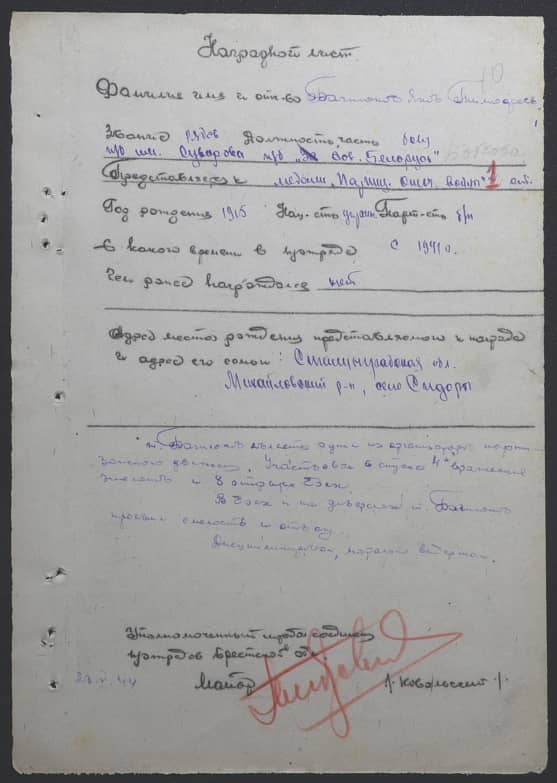 Наградной лист
10
Фамилия имя и отч-во
Звание рядов Должность, часть боец
п/о им. Суворова п/б "За Сов. Белорусь"
Представляется к медали "Партиз. Отеч. войны" 1 ст.
Год рождения 1915 Нац-сть Парт-сть б/п
С какого времени в п/отряде с 1941 г.
Чем ранее награждался нет
Адрес место рождения представляемого к награде
и адрес его семьи: Сталинградская обл.
Михайловский р-н, село Сидоры
т. является один из организаторов парти-
занского движения. Участвовал в спуске 4х вражеских
эшелонов и 8 открытых боях.
В боях и на диверсиях т.
проявил смелость и отвагу.
Дисциплинирован, морально выдержан.
Уполномоченный штаба соедин.
п/отрядов Брестской обл.
Майор /. Ковальский /.
V.44